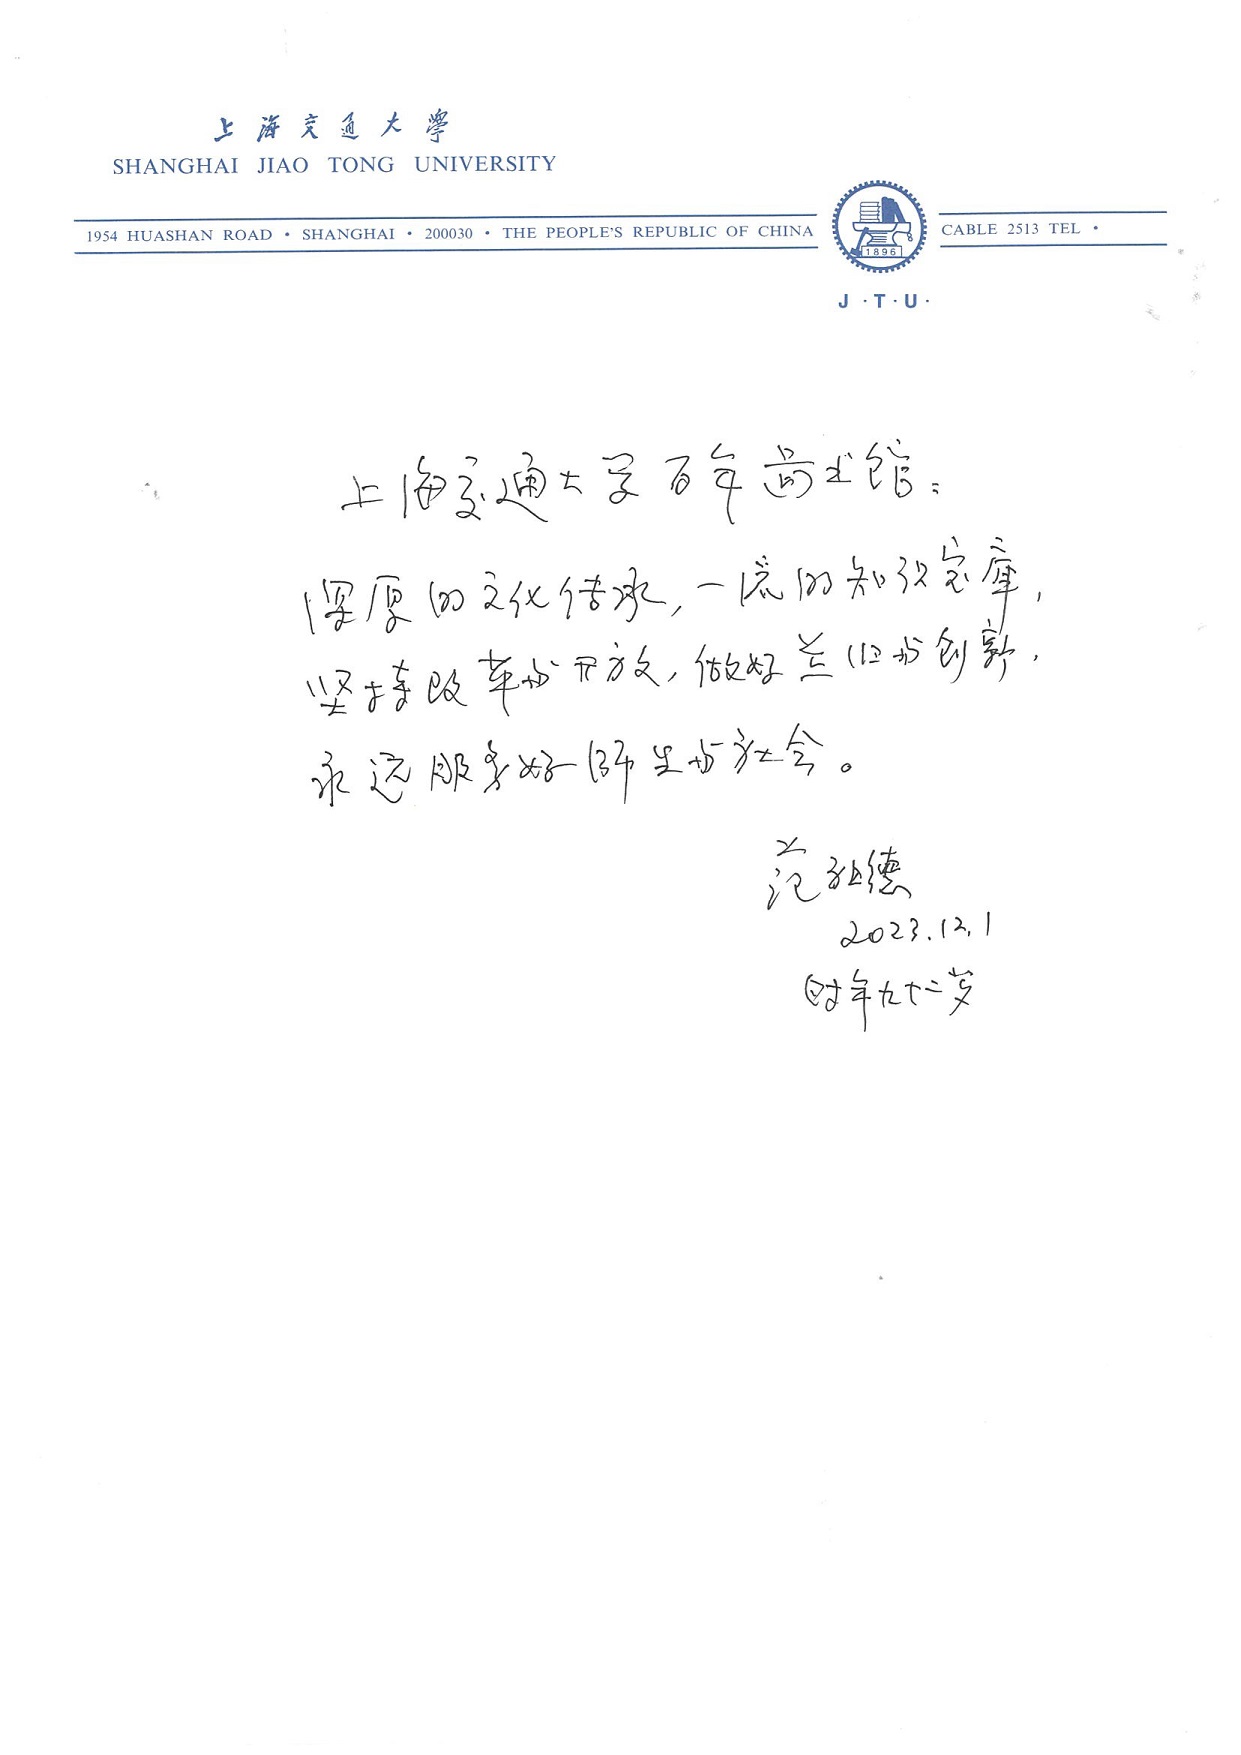 上海交通大學
SHANGHAI JIAO TONG UNIVERSITY
1954 HUASHAN ROAD • SHANGHAI • 200030 • THE PEOPLE'S REPUBLIC OF CHINA
1896
CABLE 2513 TEL •
J·T·U·
上海交通大学百年图书馆：
深厚的文化传承，一流的知识宝库，
坚持改革与开放，做好兰旧与创新，
永远服务好师生与社会。
范祖德
2023.12.1
时年九十二岁